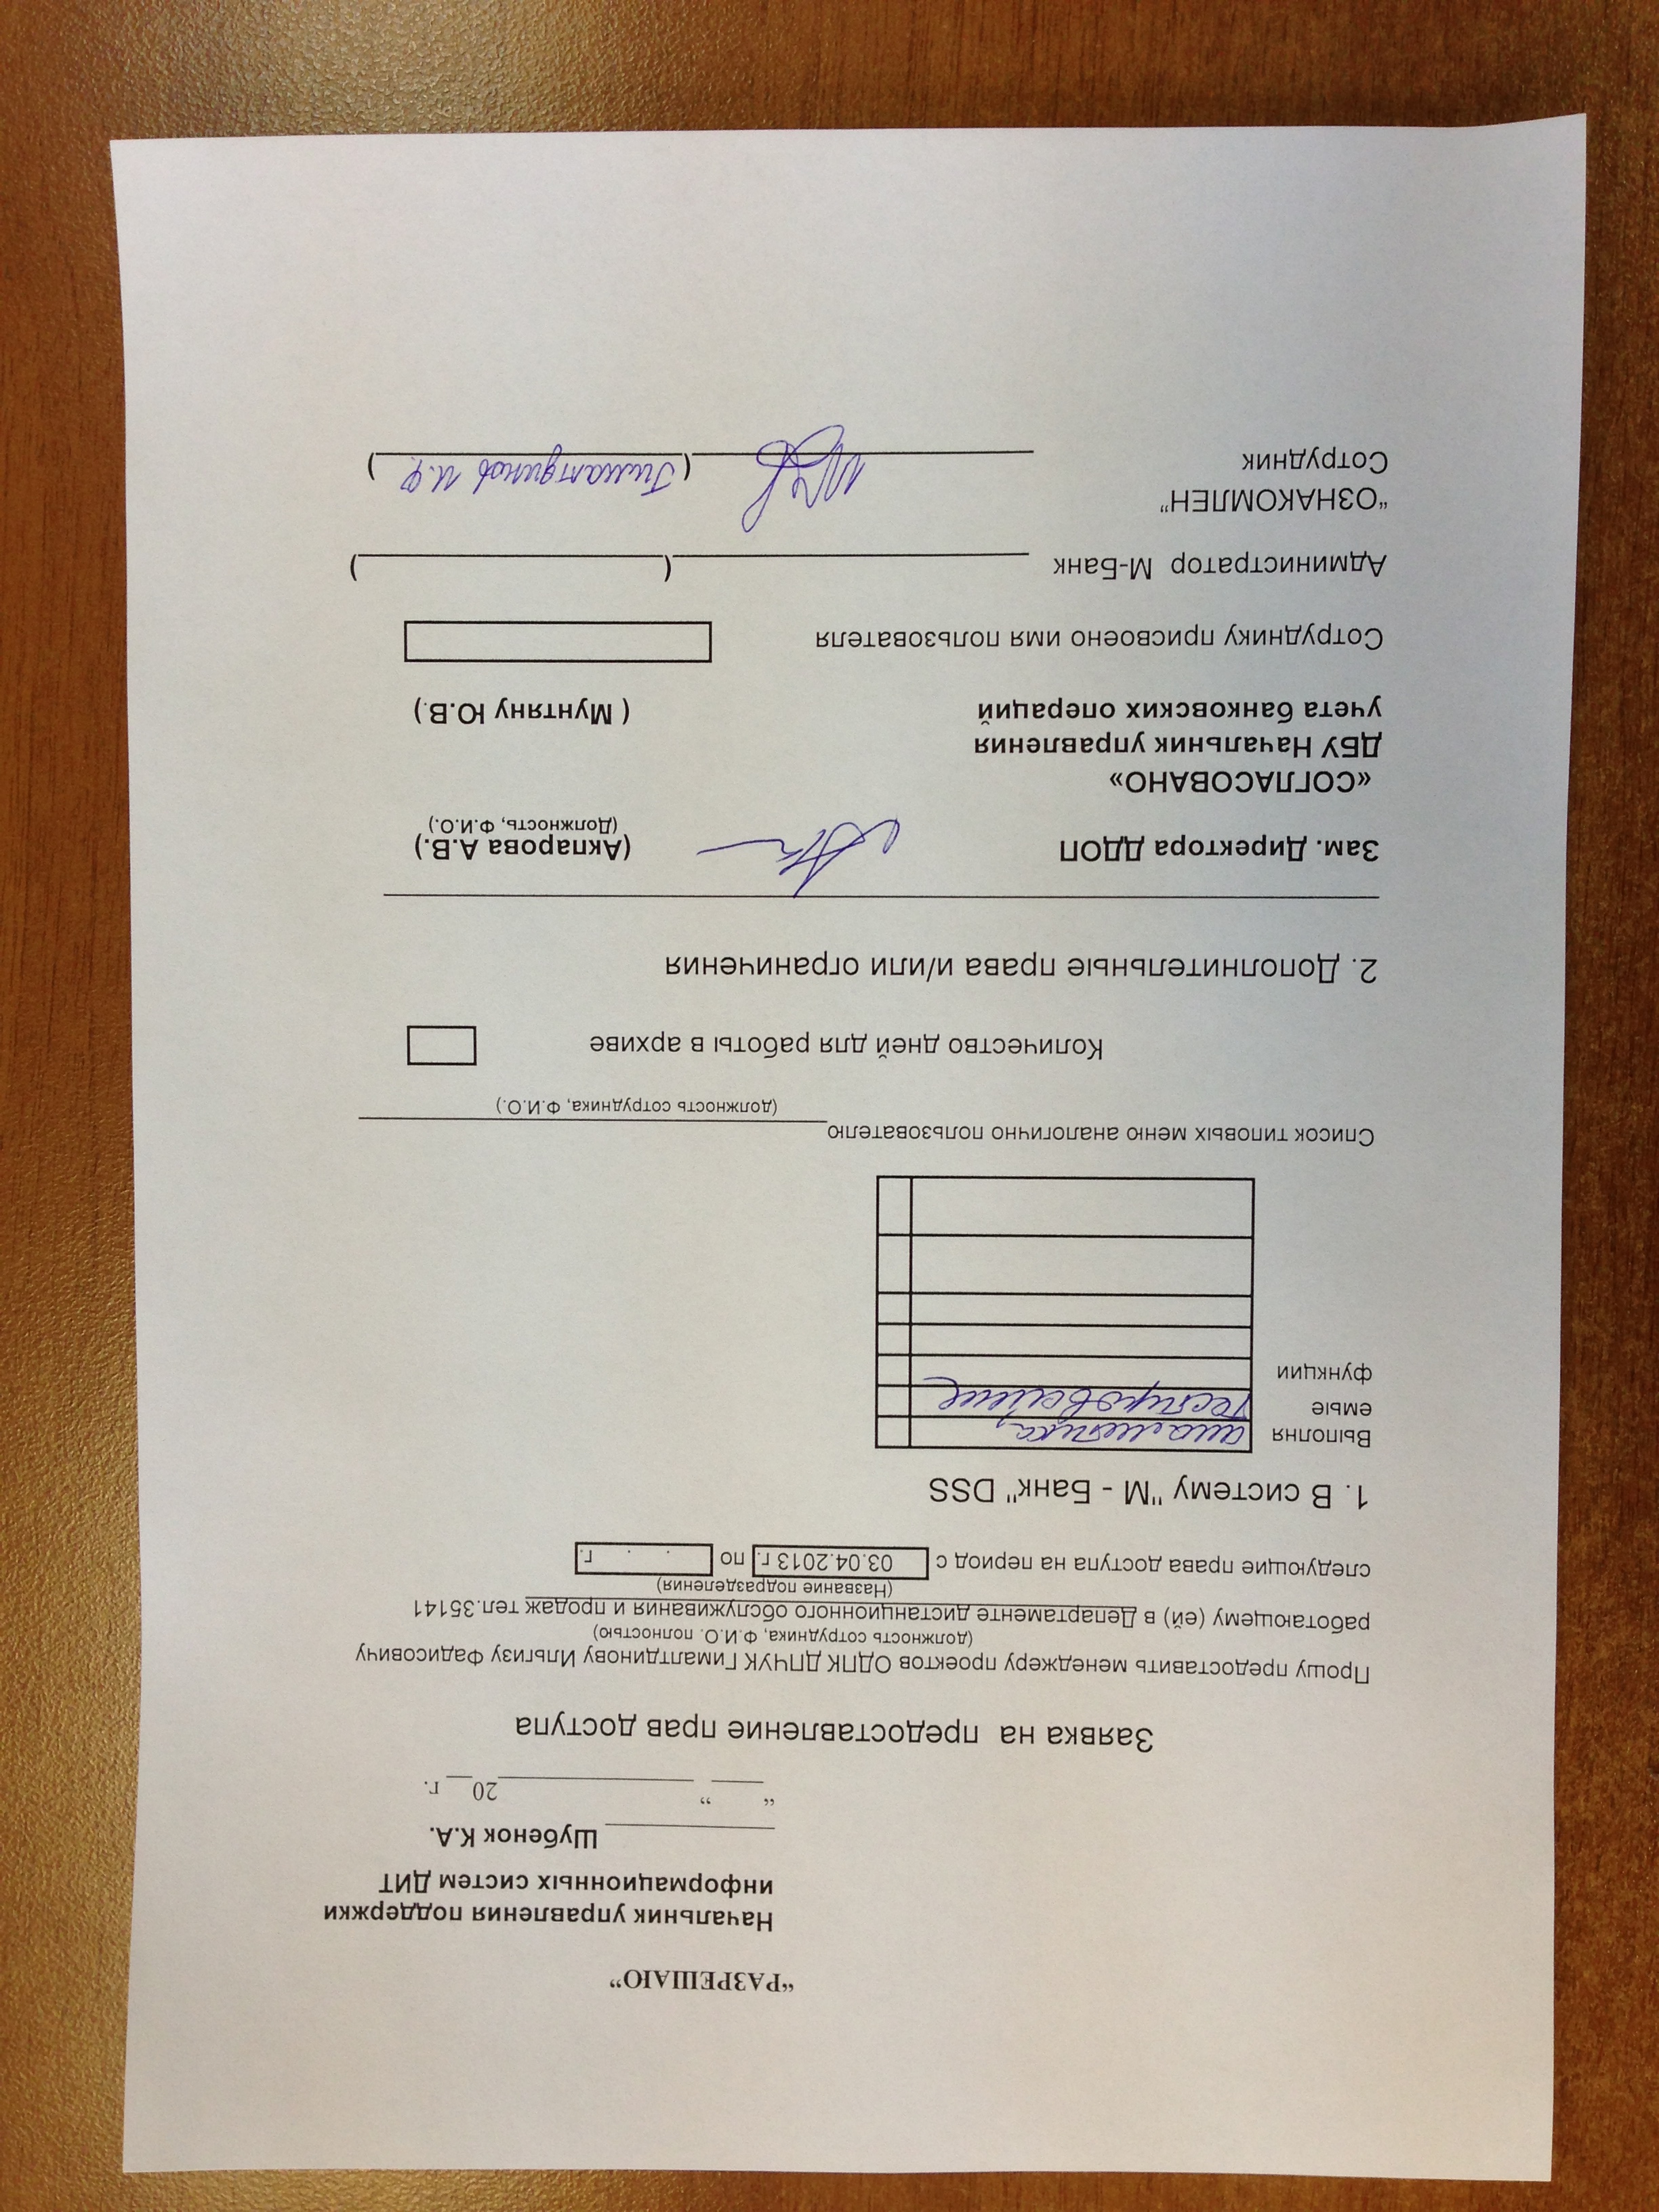 “РАЗРЕШАЮ”
Начальник управления поддержки
информационных систем ДИТ
____________ Шубенок К.А.
“____” ______________20__ г.
Заявка на предоставление прав доступа
Прошу предоставить менеджеру проектов ОДПК ДПЧУК Гималтдинову Ильгизу Фадисовичу
(должность сотрудника, Ф.И.О. полностью)
работающему (ей) в Департаменте дистанционного обслуживания и продаж тел.35141
(Название подразделения)
следующие права доступа на период с 03.04.2013 г. по . . г.
1. В систему "М - Банк" DSS
Выполня
емые
функции
аналитика,
тестирование
Список типовых меню аналогично пользователю
(должность сотрудника, Ф.И.О.)
Количество дней для работы в архиве
2. Дополнительные права и/или ограничения
Зам. Директора ДДОП (Акпарова А.В.)
(Должность, Ф.И.О.)
«СОГЛАСОВАНО»
ДБУ Начальник управления
учета банковских операций ( Мунтяну Ю.В.)
Сотруднику присвоено имя пользователя
Администратор М-Банк ____________(____________)
“ОЗНАКОМЛЕН”
Сотрудник ____________(Гималтдинов И.Ф.)